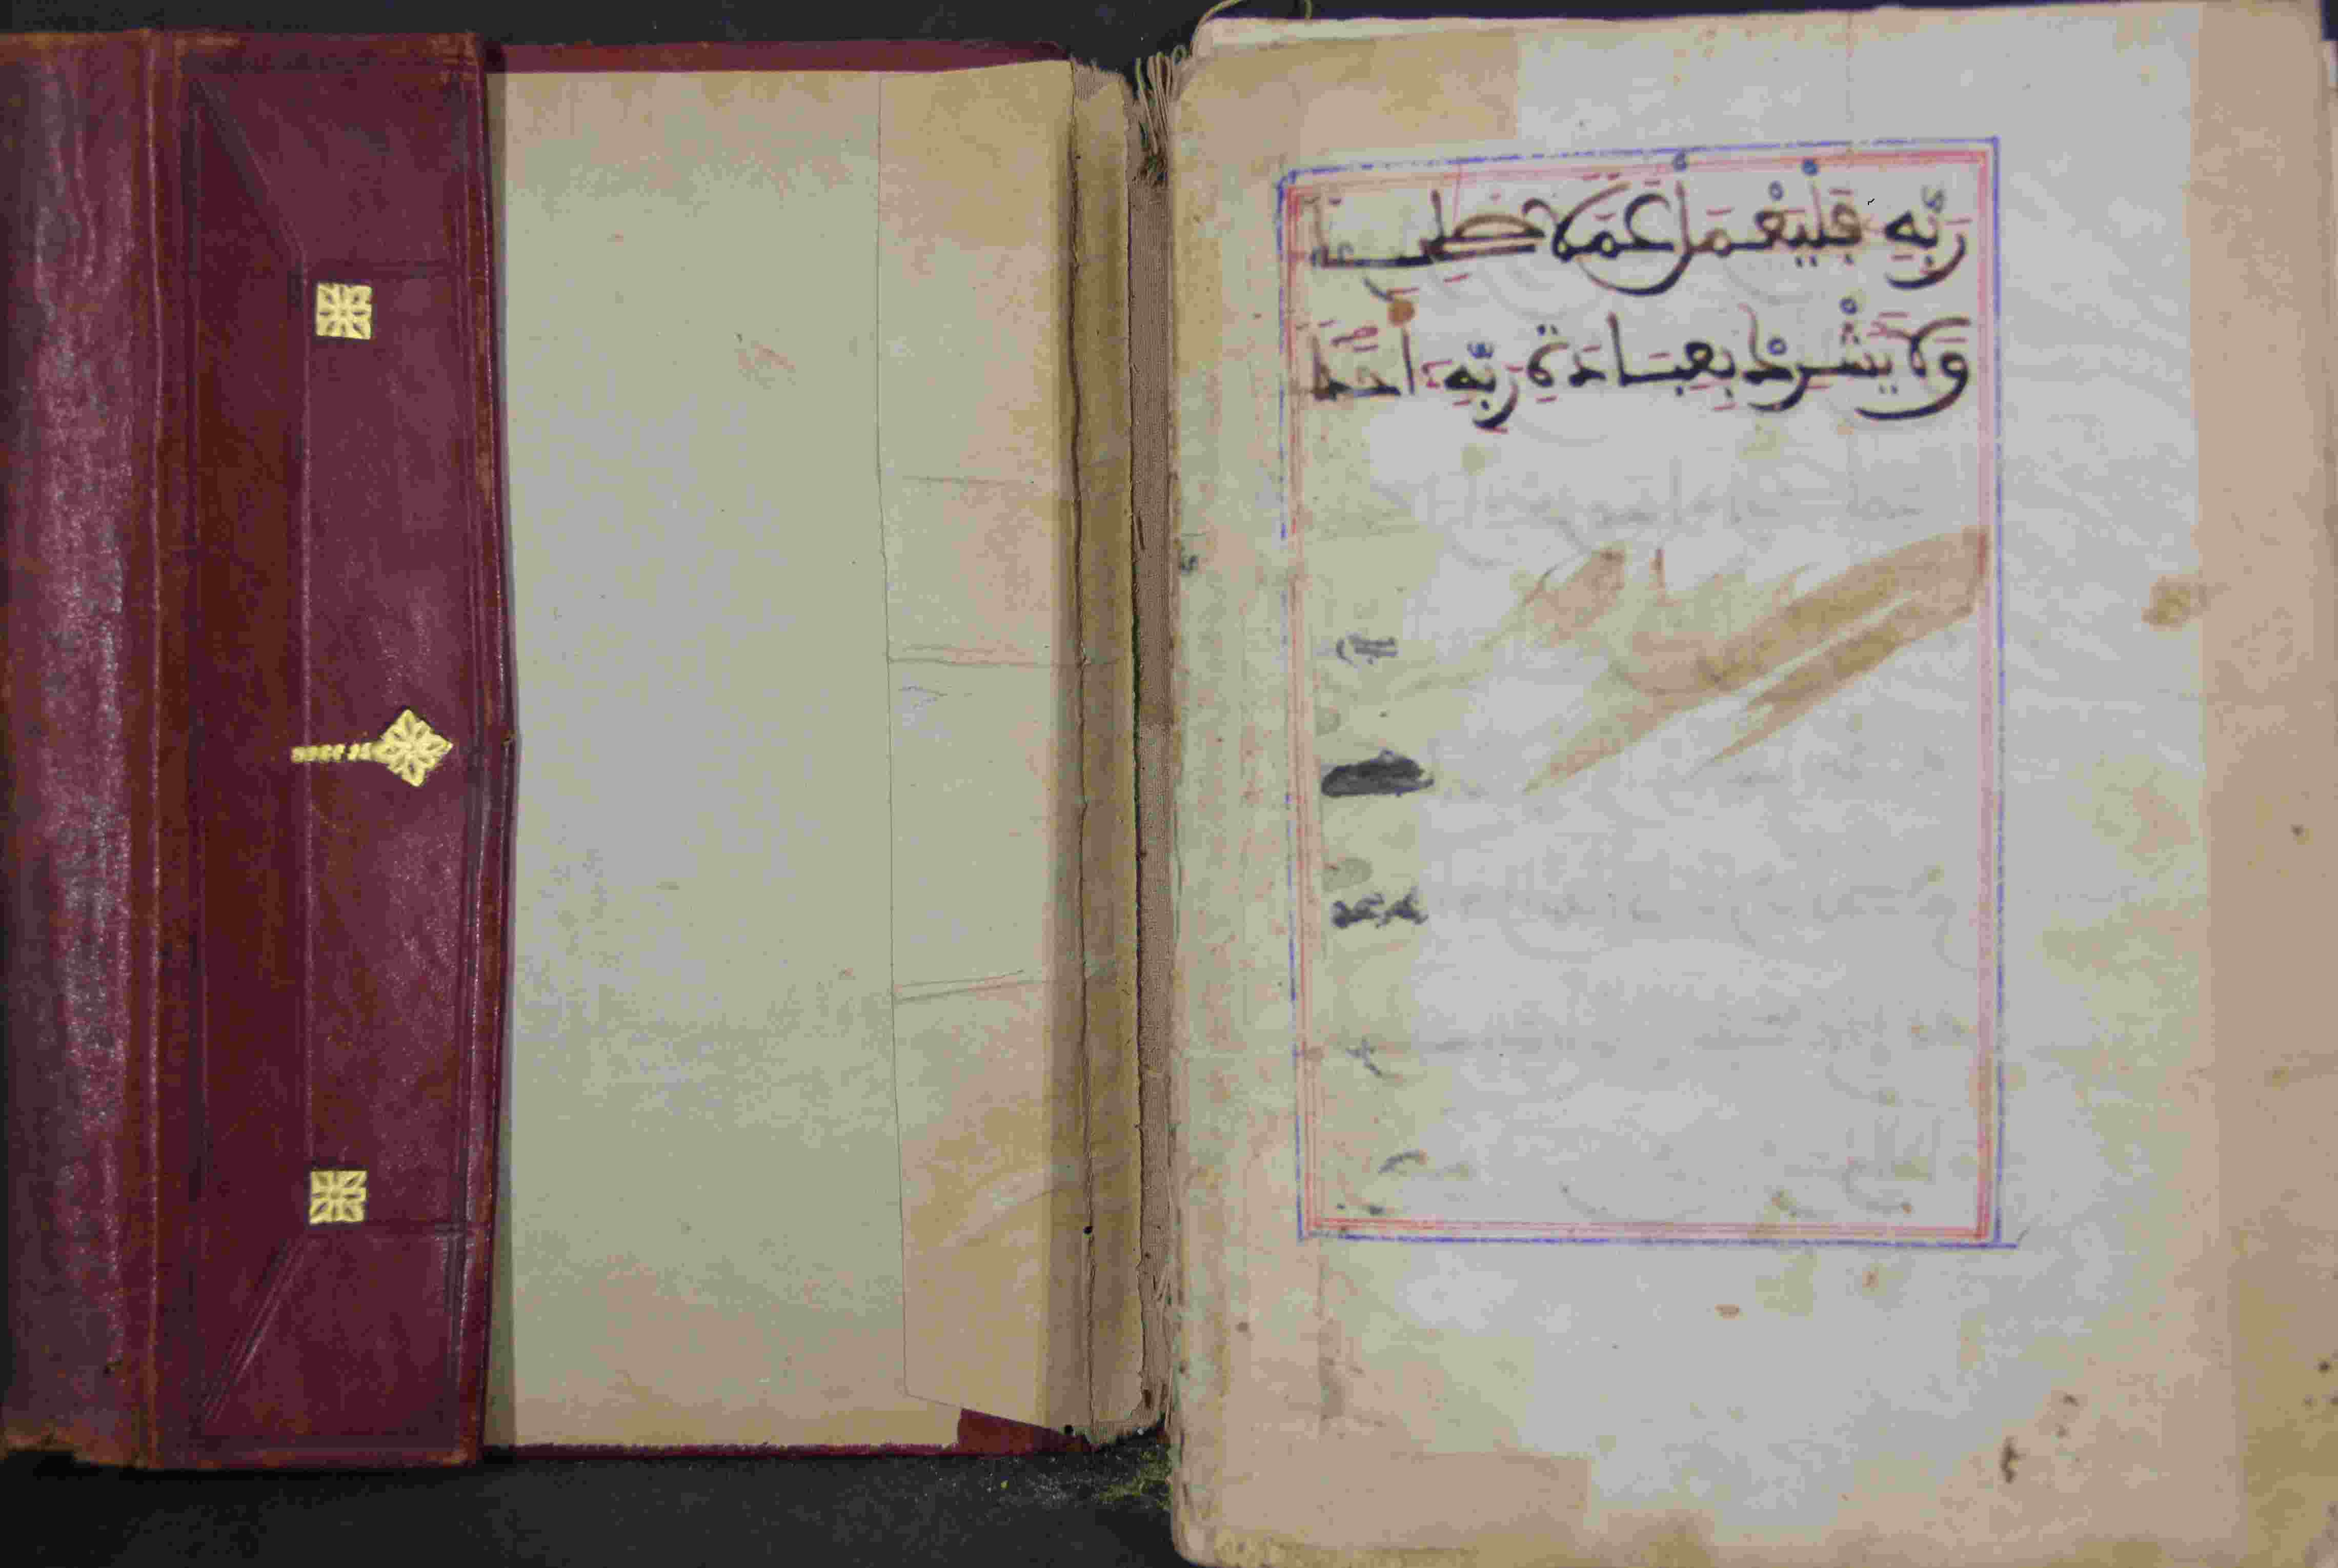 رَبِّهِۦ فَلْيَعْمَلْ عَمَلًا صَٰلِحًا
وَلَا يُشْرِكْ بِعِبَادَةِ رَبِّهِۦٓ أَحَدًا